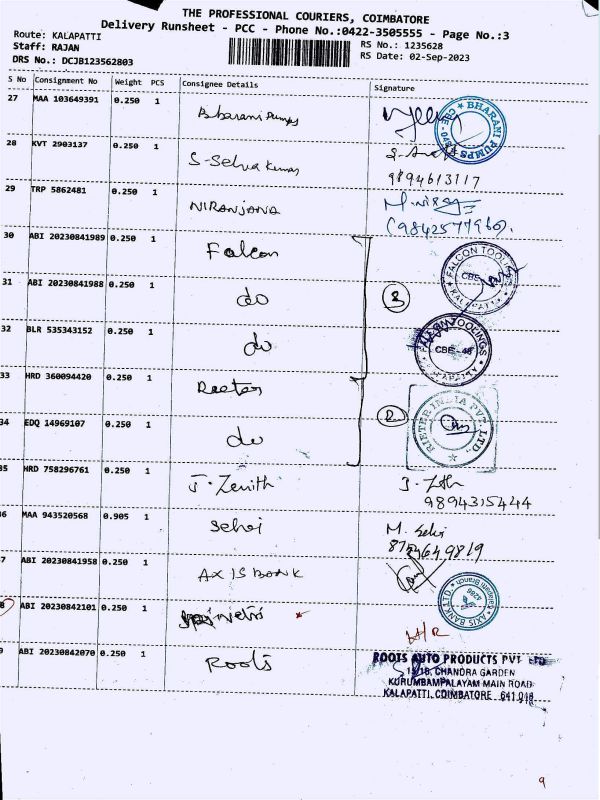 THE PROFESSIONAL COURIERS, COIMBATORE
Delivery Runsheet - PCC - Phone No.:0422-3505555 - Page No.:3
Route: KALAPATTI
Staff: RAJAN
RS No.: 1235628
DRS No.: DCJB123562803
RS Date: 02-Sep-2023
S No Consignment No Weight PCS Consignee Details Signature
27 MAA 103649391 0.250 1 Bharani Pumps
BHARANI PUMPS
28 KVT 2903137 0.250 1 S-Selva Kumar
9894613117
29 TRP 5862481 0.250 1 NIRANJANA
30 ABI 20230841989 0.250 1 Falcon
FALCON TOOLINGS
KALAPATTI
31 ABI 20230841988 0.250 1 do
32 BLR 535343152 0.250 1 do
TOOLINGS
CBE - 48
33 HRD 360094420 0.250 1
34 EDQ 14969107 0.250 1 do
RIETER INDIA PVT. LTD.
35 HRD 758296761 0.250 1 J. Zenith
9894315444
6 MAA 943520568 0.905 1 Selvi
M. Selvi
7 ABI 20230841958 0.250 1 AXIS BANK
AXIS BANK LTD.
8 ABI 20230842101 0.250 1
9 ABI 20230842070 0.250 1 Roots
ROOTS AUTO PRODUCTS PVT LTD
CHANDRA GARDEN
KURUMBAMPALAYAM MAIN ROAD
KALAPATTI, COIMBATORE 641 048
9